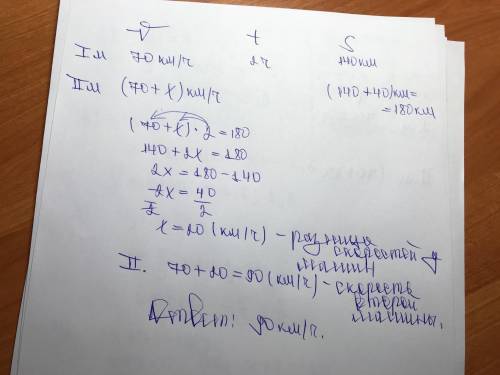 V t S
I м 70 км/ч 2ч 140км
II м (70+x) км/ч (140+40)км=
=180км
(70+x)·2=180
140+2x=180
2x=180-140
2x/2=40/2
x=20 (км/ч) - разница
скоростей
машин
II. 70+20=90(км/ч) - скорость
второй
машины.
Ответ: 90км/ч.